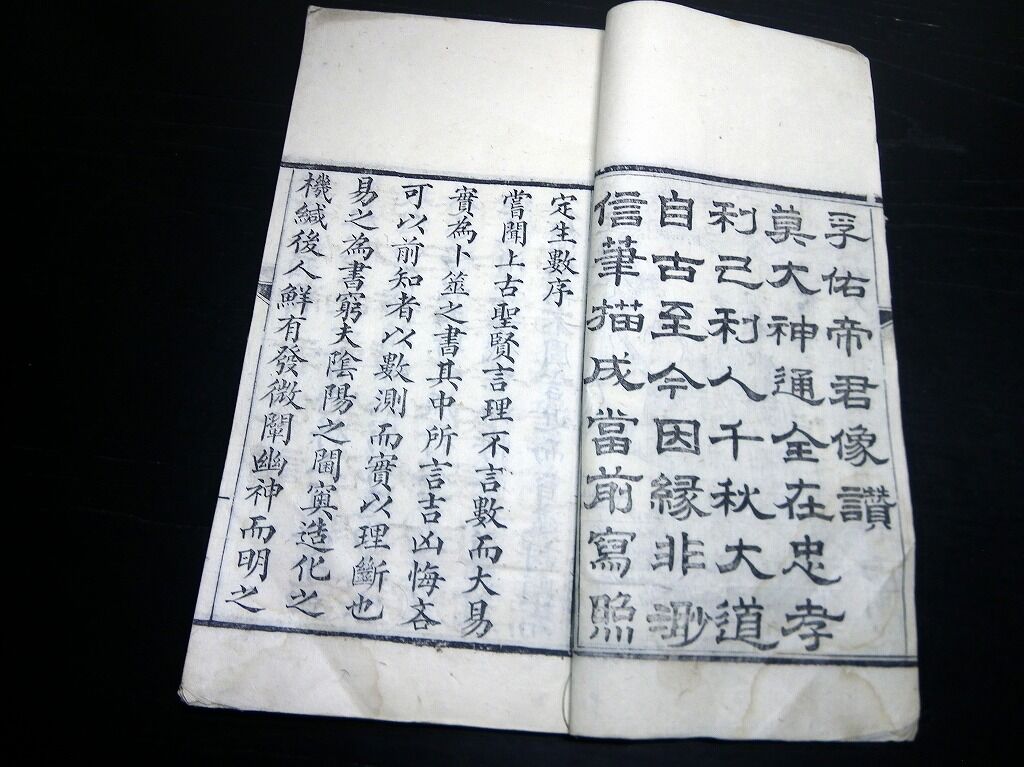 孚佑帝君像讚
莫大神通全在忠孝
利己利人千秋大道
自古至今因緣非渺
信筆描成當前寫照
定生數序
嘗聞上古聖賢言理不言數而大易
實為卜筮之書其中所言吉凶悔吝
可以前知者以數測而實以理斷也
易之為書窮夫陰陽之閫寞造化之
機緘後人鮮有發微闡幽神而明之